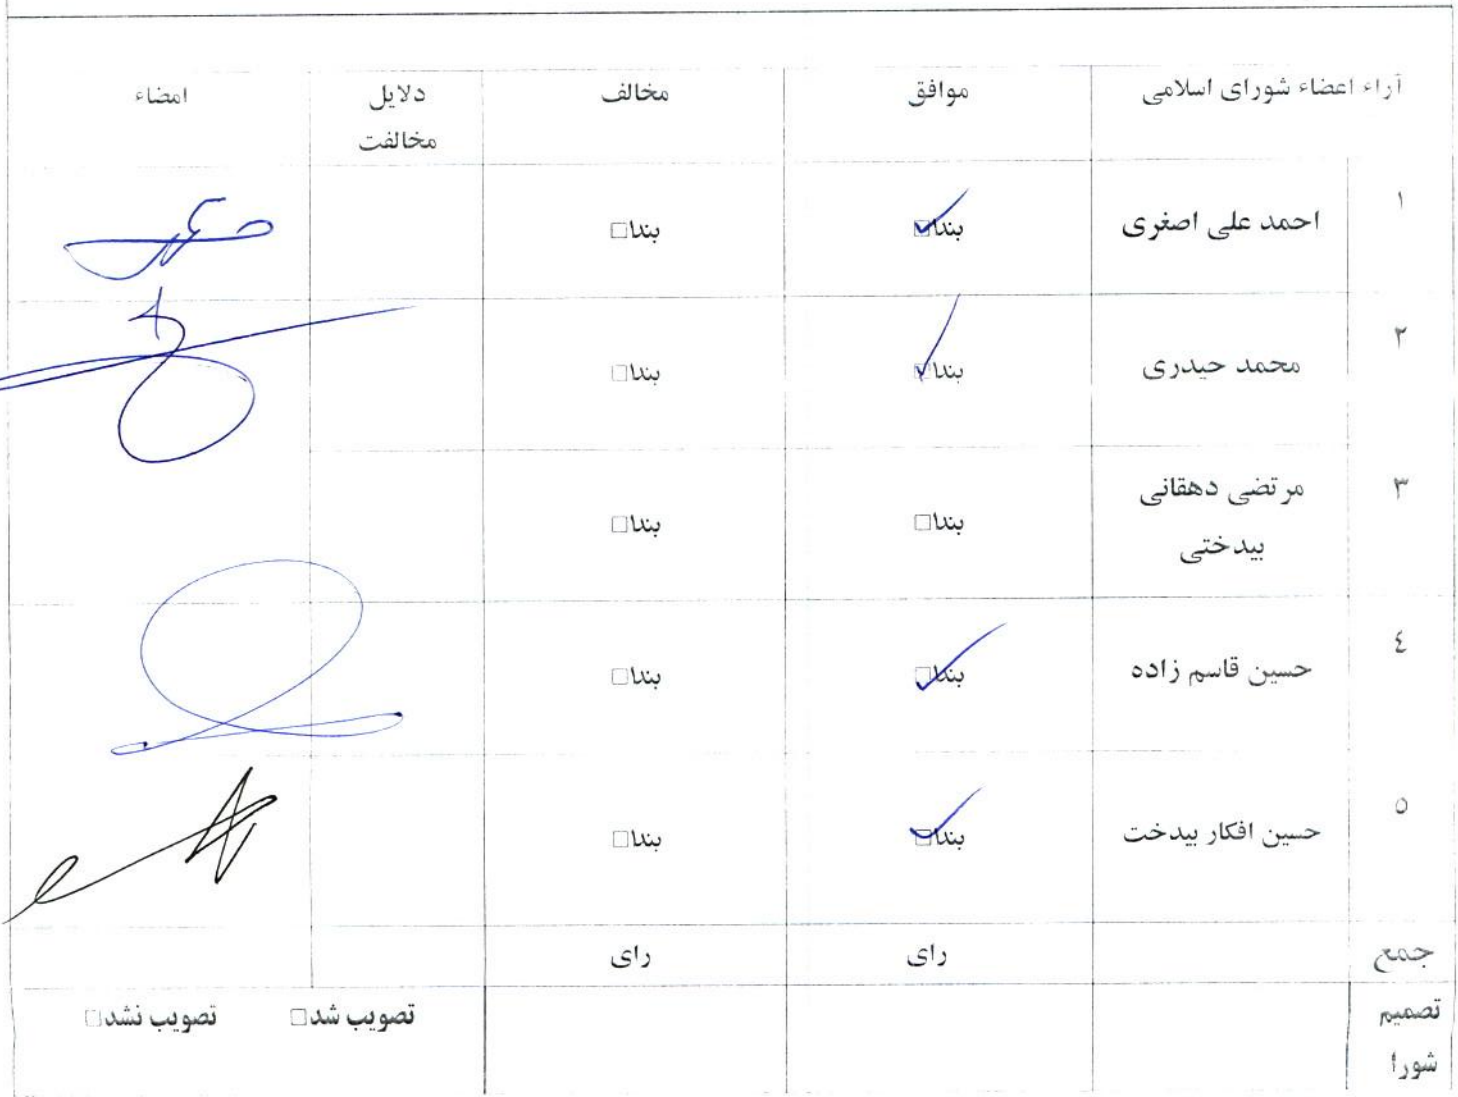 آراء اعضاء شورای اسلامی موافق مخالف دلایل مخالفت امضاء
۱ احمد علی اصغری بند۱☑ بند۱□
۲ محمد حیدری بند۱☑ بند۱□
۳ مرتضی دهقانی بیدختی بند۱□ بند۱□
٤ حسین قاسم زاده بند۱☑ بند۱□
۵ حسین افکار بیدخت بند۱☑ بند۱□
جمع رای رای
تصمیم شورا تصویب شد□ تصویب نشد□